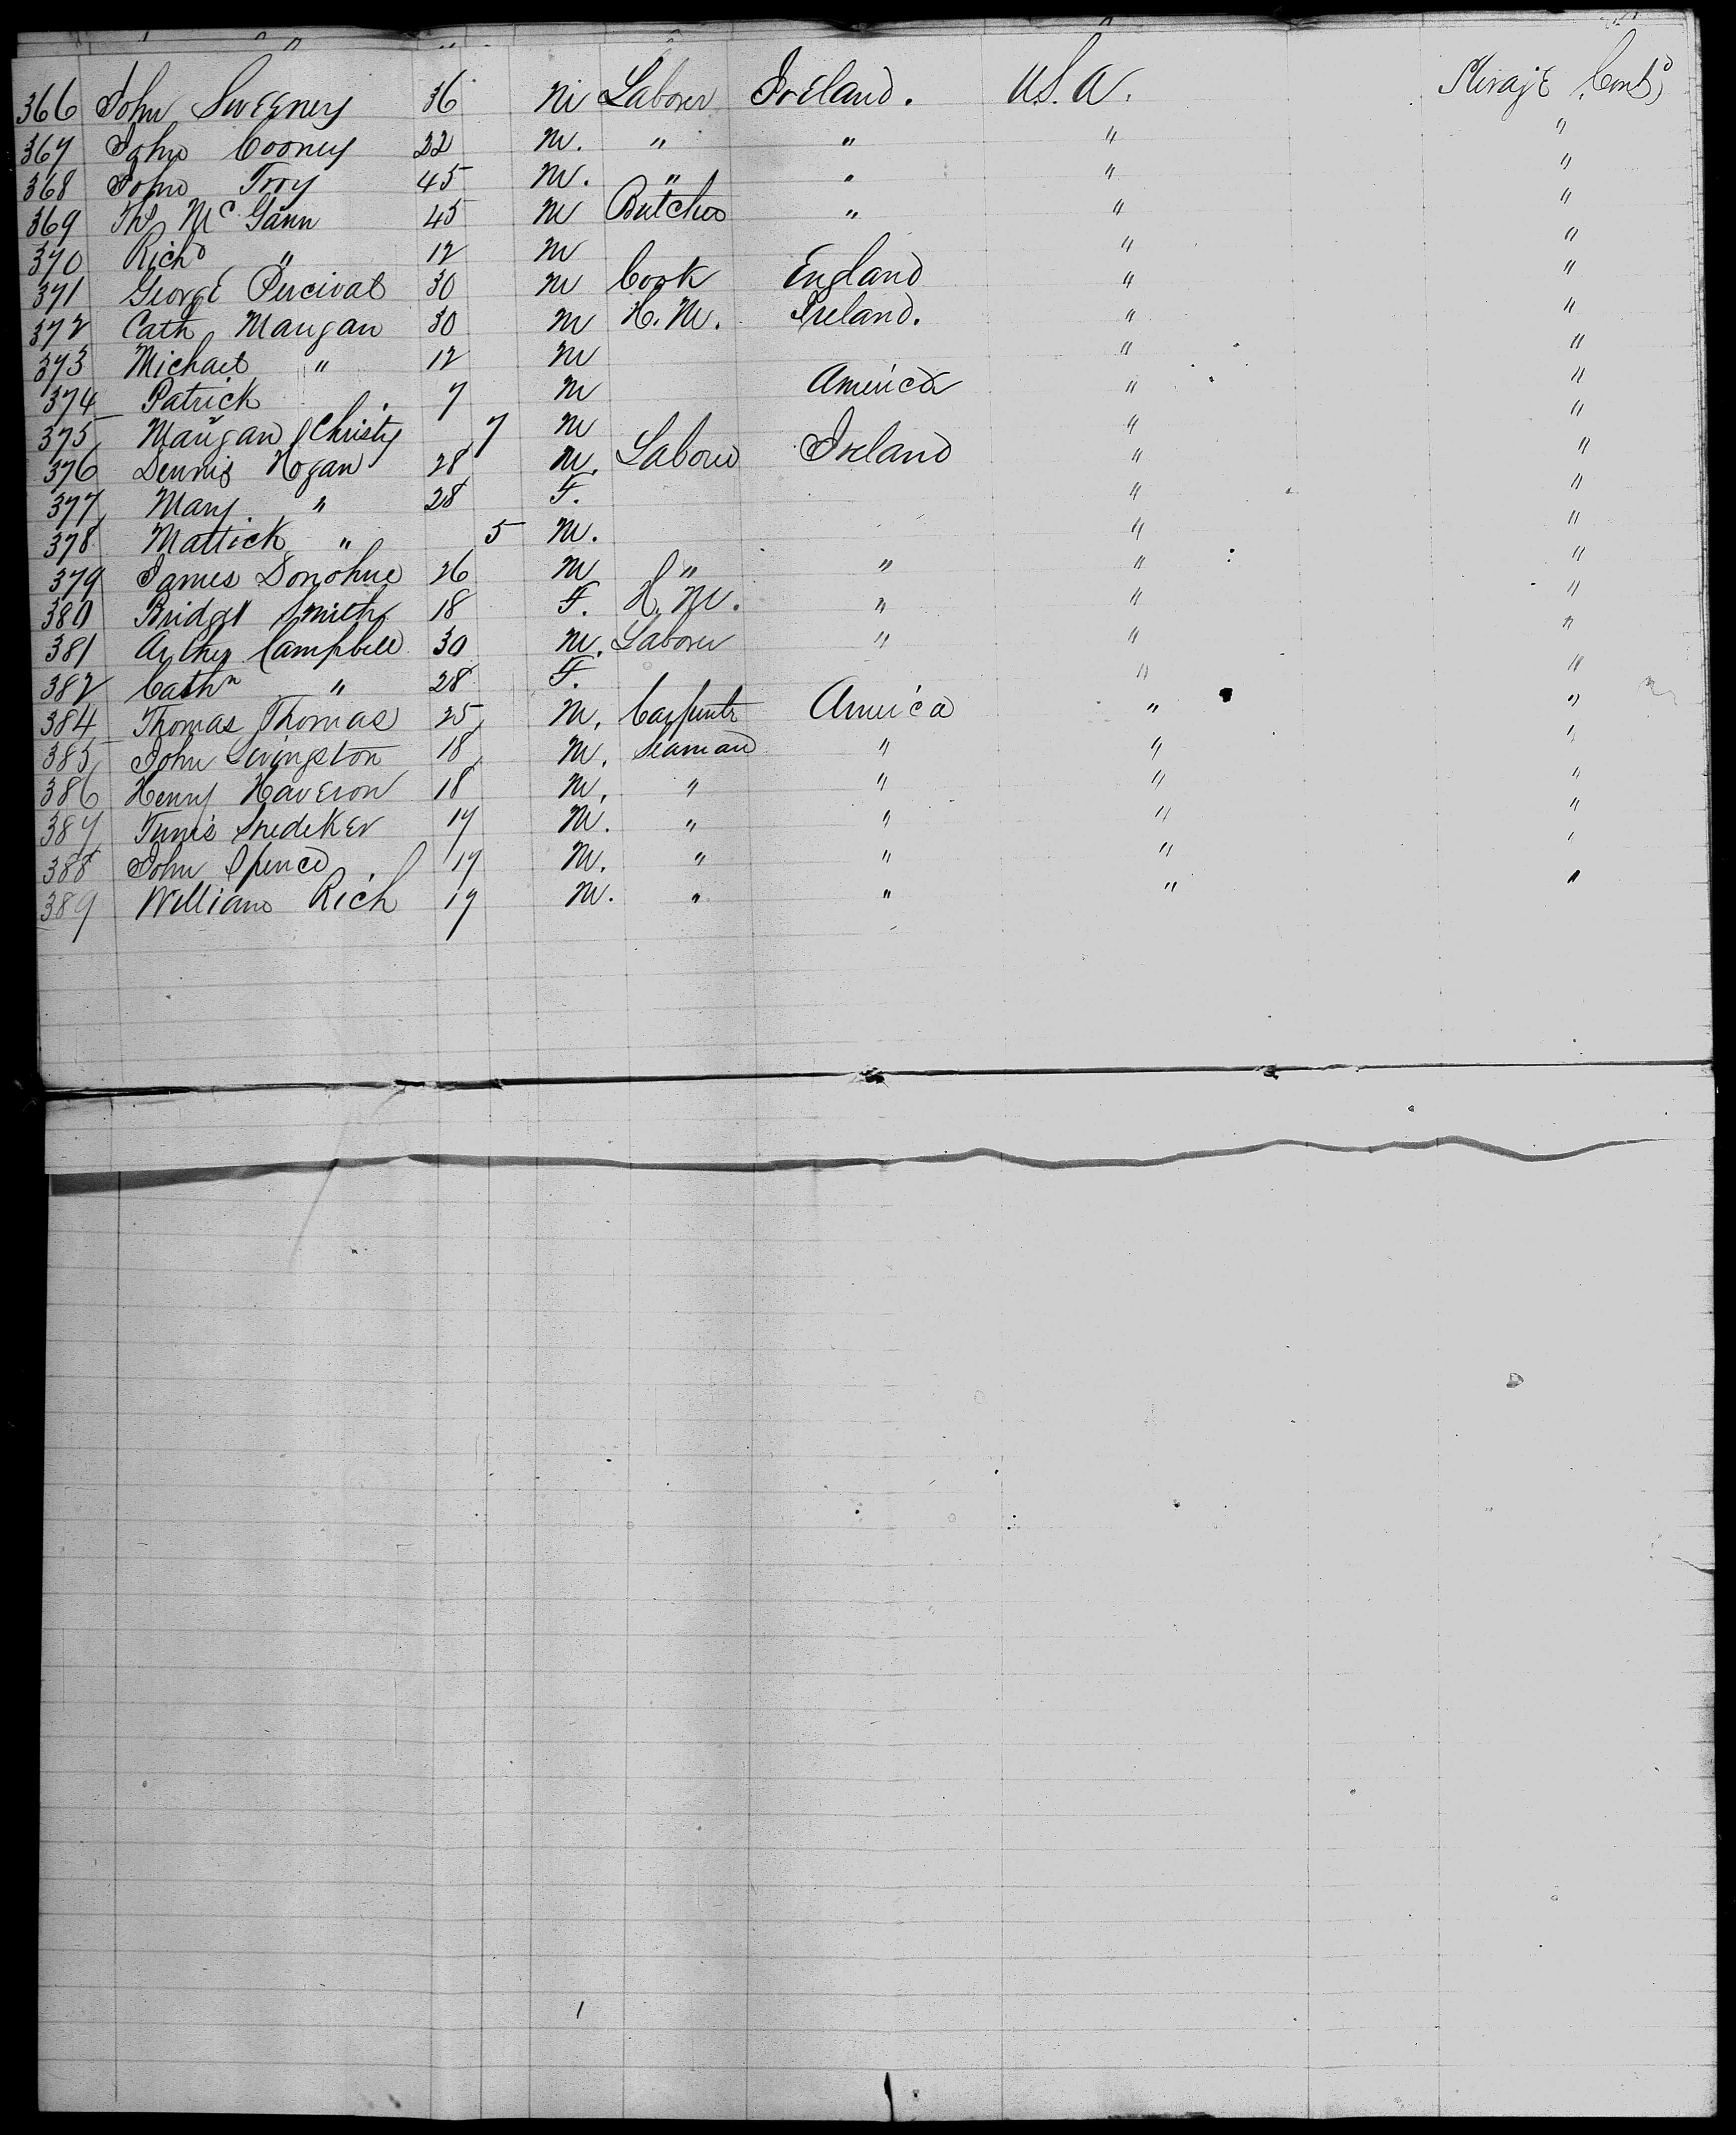 366 John Sweeney 36 M Laborer Ireland. U.S.A. Steraje Contd
367 John Cooney 22 M. " " " "
368 John Troy 45 M. " " " "
369 Ths McGann 45 M Butcher " " "
370 Richd " 12 M " "
371 George Percival 30 M Cook England " "
372 Cath Mangan 30 M H.M. Ireland. " "
373 Michael " 12 M " "
374 Patrick 7 M America " "
375 Mangan Christy 7 M " "
376 Dennis Hogan 28 M. Laborer Ireland " "
377 Mary " 28 F. " "
378 Mattick " 5 M. " "
379 James Donohue 26 M " " " "
380 Bridget Smith 18 F. H.M. " " "
381 Arthur Campbell 30 M. Laborer " " "
382 Cathn " 28 F. " "
384 Thomas Thomas 25 M. Carpentr America " "
385 John Livingston 18 M. Seaman " " "
386 Henry Haveron 18 M. " " " "
387 Tunis Snedeker 19 M. " " " "
388 John Spence 19 M. " " " "
389 William Rich 19 M. " " " "